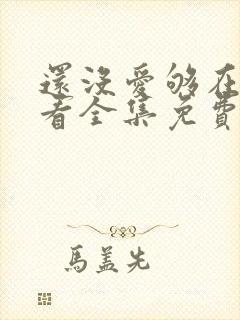 還沒愛够在
看全集免費
馬盖先